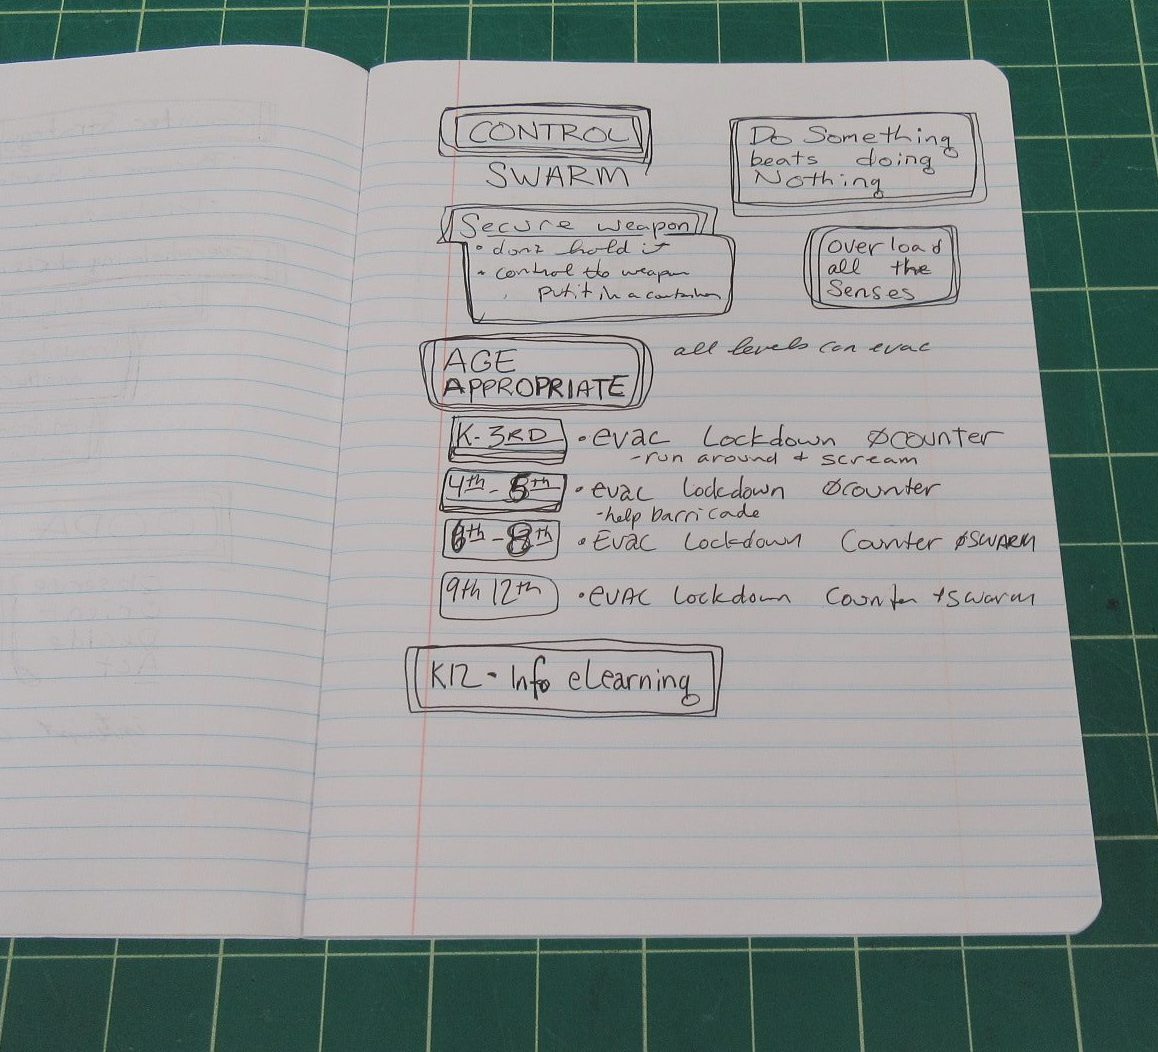 CONTROL
SWARM
Do Something
beats doing
Nothing
Secure weapon
• dont hold it
• control the weapon
put it in a container
over load
all the
Senses
AGE
APPROPRIATE
all levels can evac
K-3RD • evac Lockdown ØCOUNTER
-run around + scream
4th-5th • evac lockdown Øcounter
-help barricade
6th-8th • Evac Lockdown Counter ØSWARM
9th 12th • evac lockdown Counter +swarm
K12 - Info eLearning